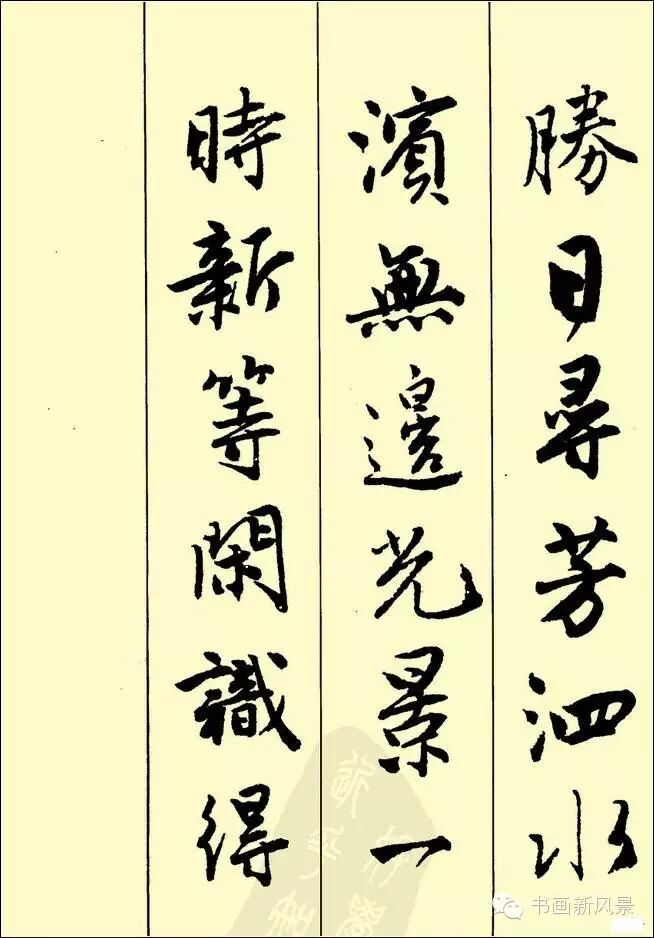 勝日尋芳泗水
濱無邊光景一
時新等閑識得
书画新风景